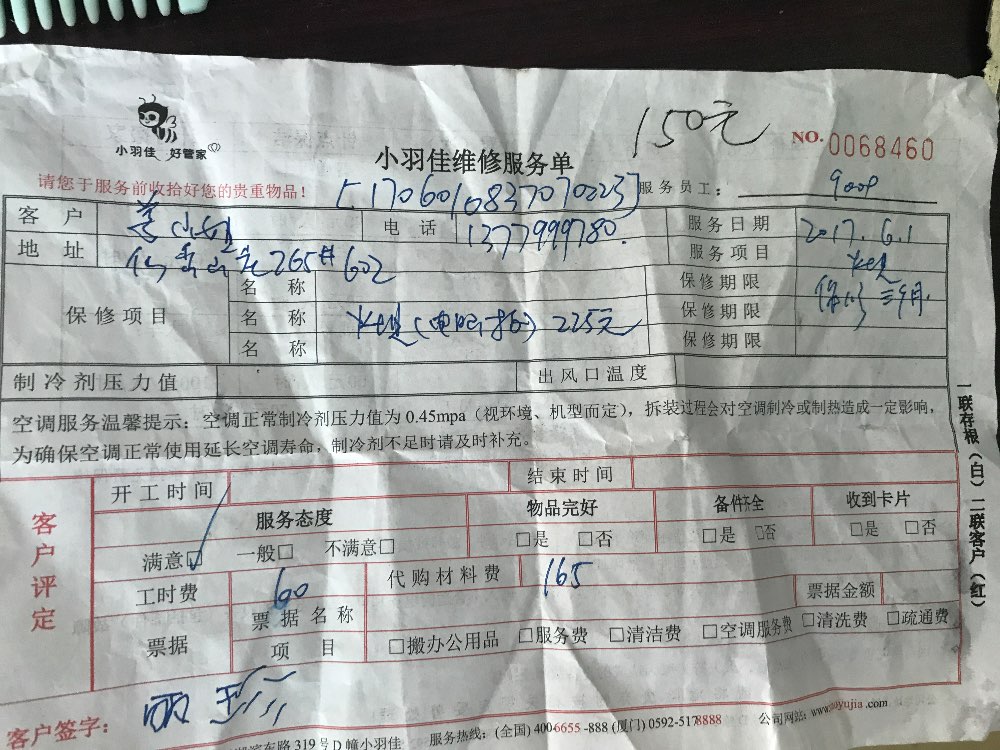 小羽佳 好管家
150元
NO.0068460
小羽佳维修服务单
请您于服务前收拾好您的贵重物品！
[1706010837070223]
服务员工： 9008
客 户 小姐 电 话 13779999780. 服务日期 2017.6.1
地 址 265# 602 服务项目
保修项目 名 称 保修期限
名 称 225元 保修期限
名 称 保修期限
制冷剂压力值 出风口温度
空调服务温馨提示：空调正常制冷剂压力值为 0.45mpa（视环境、机型而定），拆装过程会对空调制冷或制热造成一定影响，
为确保空调正常使用延长空调寿命，制冷剂不足时请及时补充。
一联存根（白）二联客户（红）
客户评定
开工时间 结束时间
服务态度 物品完好 备件齐全 收到卡片
满意☑ 一般□ 不满意□ □是 □否 □是 □否 □是 □否
工时费 60 代购材料费 165 票据金额
票据 票据名称
项 目 □搬办公用品 □服务费 □清洁费 □空调服务费 □清洗费 □疏通费
客户签字：
东路 319 号 D 幢小羽佳 服务热线：(全国) 400-6655 -888 (厦门) 0592-5178888 公司网站: www.xoyujia .com